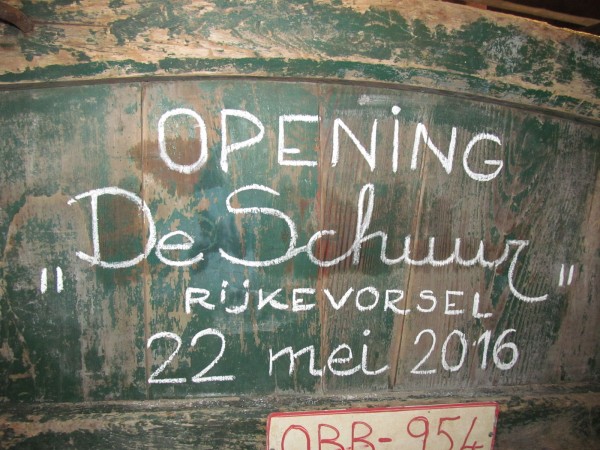 OPENING
"De Schuur"
RIJKEVORSEL
22 mei 2016
QBB-954